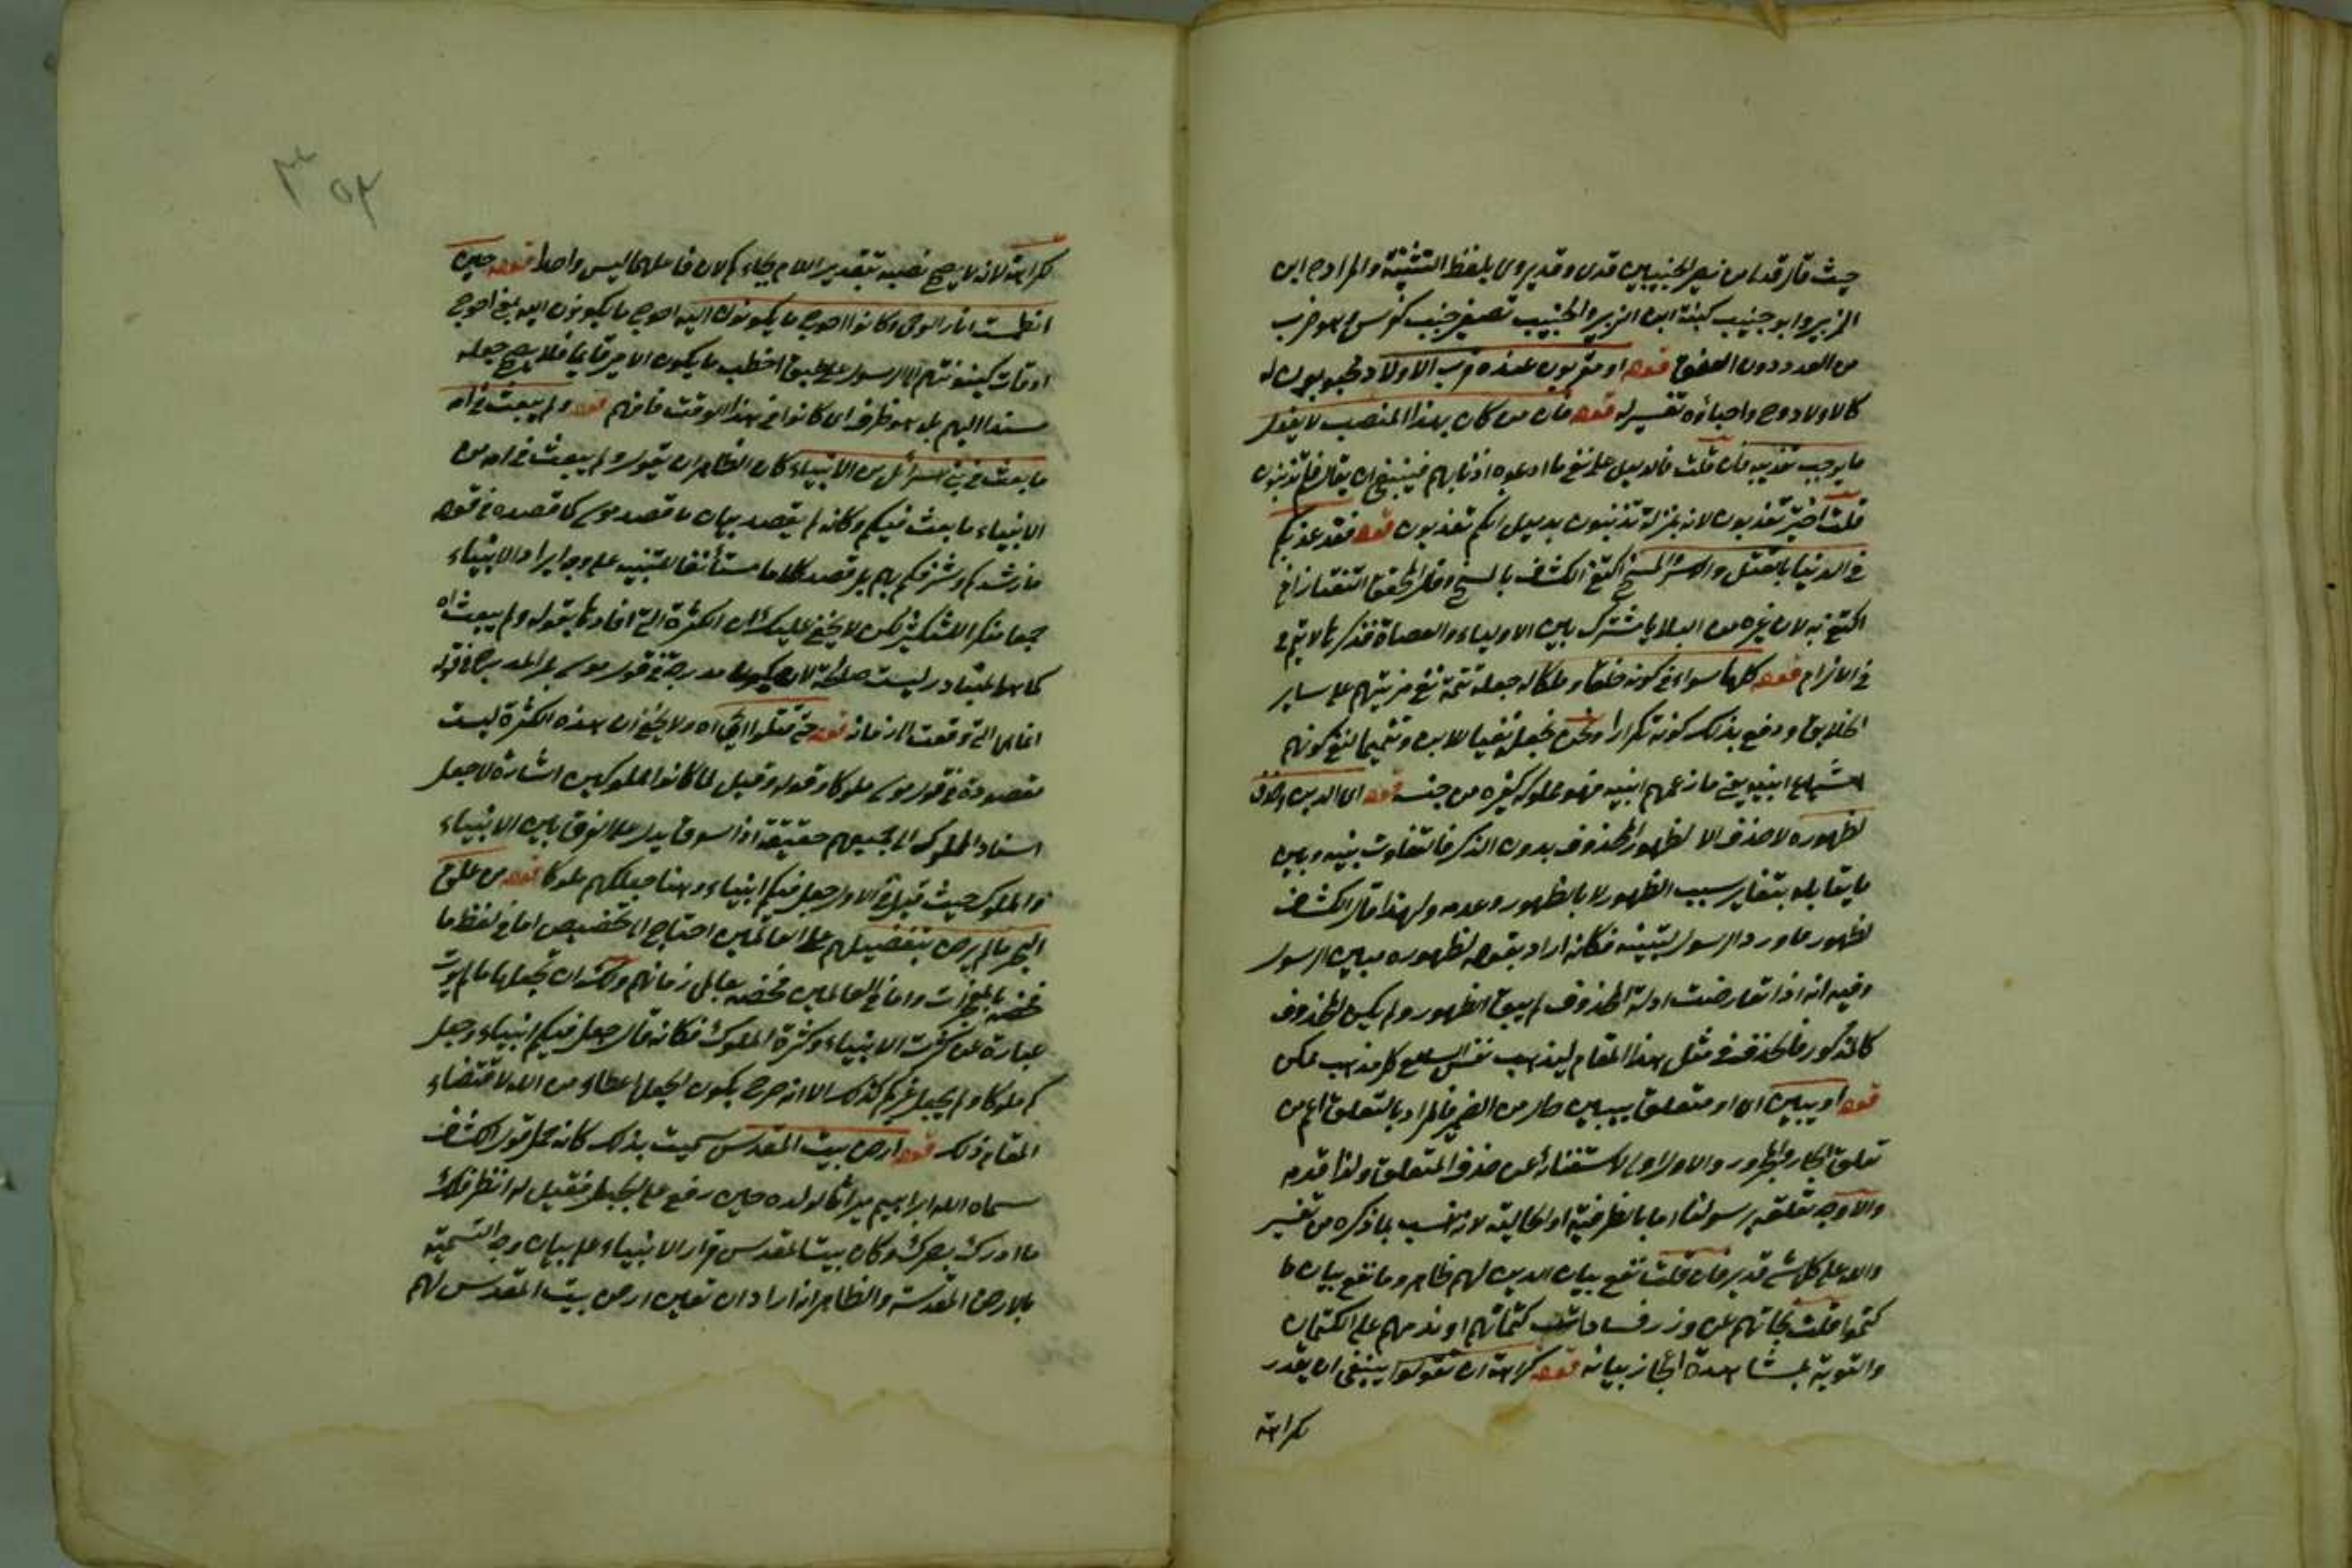 حيث قال قدني من نصر الخبيبين قدي وقد يروى بلفظ التثنية والمراد ابن
الزبير وابو خبيب كنية ابن الزبير والخبيب تصغير خبب
من العدد دون قوله او مقربون عنده قرب الاولاد
كالاولاد واحباؤه تفسير له قوله فان من كان بهذا المنصب لا يفعل
ما يوجب تعذيبه فان قلت فالدليل على نفي ما ادعوه اذنابهم فينبغي ان يقال فلم تذنبون
قلت اختير تعذبون لانه بمنزلة تذنبون بدليل انكم تعذبون قوله فقد عذبكم
في الدنيا بالقتل والاسر والمسخ اكتفى الكشاف بالمسخ وقال المحقق التفتازاني
اكتفى به لان غيره من البلايا مشترك بين الاولياء والعصاة فذكرها لا يتم في
في الالزام قوله كلها سواء في كونه خلقا وملكا له جعله تتمة نفي مزيتهم على سائر
الخلايق ودفع بذلك كونه تكرارا ونحن نجعل نفيا للابن وتتميما لنفي كونهم
اشياع ابنيه يعني ما زعمهم ابنيه فهو مملوك كغيره من جنسه قوله اي الدين وحذف
لظهوره لا حذف الا لظهور المحذوف بدون الذكر فالتفاوت بينه وبين
ما يقابله بتغاير سبب الظهور لا بالظهور وعدمه ولهذا قال الكشاف
لظهور ما ورد الرسول لتبيينه فكانه اراد بقوله لظهوره مبين الرسول
وفيه انه اذا تعارضت ادلة المحذوف لم يبق الظهور ولم يكن المحذوف
كالمذكور فالحذف في مثل هذا المقام ليذهب نفس السامع كل مذهب ممكن
قوله او يبين اي او متعلق بيبين حال من الضمير فالمراد بالتعلق اعم من
تعلق الجار والمجرور والاول اولى لاستغنائه عن حذف المتعلق ولذا قدمه
والاوجه تعلقه برسولنا اما بالظرفية او الحالية لانه انسب بما ذكره من تفسير
والله على كل شيء قدير فان قلت نفع بيان الدين لهم ظاهر وما نفع بيان ما
كتموا قلت نجاتهم عن وزر فساد كتمانهم او ندمهم على الكتمان
والتوبة بمشاهدة اعجاز بيانه قوله كراهة ان تقولوا ينبغي ان يقدر
كراهة
كراهة لانه لا يصح نصبه بتقدير اللام بجاءكم لان فاعلهما ليس واحدا قوله حين
انطمست اثار الوحي وكانوا احوج ما يكونون اليه احوج ما يكونون اليه بمعنى احوج
اوقات كينونتهم الى الرسول على طبق اخطب ما يكون الامير قائما فلا يصح جعله
مسندا اليهم بل هو ظرف اي كانوا في هذا الوقت فافهم قوله ولم يبعث في امة
ما بعث في بني اسرائيل من الانبياء كان الظاهر ان يقول ولم يبعث في امة من
الانبياء ما بعث فيكم وكانه لم يقصد بيان ما قصد موسى كما قصده في قوله
فارشدكم وشرفكم بهم بل قصد كلاما مستأنفا للتنبيه على وجه ايراد الانبياء
جمعا منكرا للتكثير لكن لا يخفى عليك ان الكثرة التي افادها بقوله ولم يبعث اه
كما هو المتبادر ليست صالحة لان مدرجة في قول موسى بل المدرج في قوله
انما هي التي وقعت الى زمانه قوله حتى قتلوا يحيى اه ولا يخفى ان هذه الكثرة ليست
مقصودة في قول موسى ملوكا وقوله وقيل لما كانوا مملوكين اشارة لا جعل
اسناد الملوك الى جميعهم حقيقة اذ السوق يدل على الفرق بين الانبياء
والملوك حيث قيل في الاول جعل فيكم انبياء وهنا جعلكم ملوكا قوله من فلق
البحر لما لم يرض بتفضيلهم على العالمين احتاج الى تخصيص اما في لفظ ما
فخصه بالمعجزات واما في العالمين فخصه بعالمي زمانهم ولك ان تجعلها ما لم يؤت
عبارة عن كثرة الانبياء وكثرة الملوك فكانه قال جعل فيكم انبياء وجعل
كم ملوكا ولم يجعل غيركم كذلك الا انه صرح بكون الجعل اعطاء من الله لاقتضاء
المقام ذلك قوله ارض بيت المقدس سميت بذلك كانه حمل قول الكشاف
سماه الله ابراهيم ميراثا لولده حين رفع على الجبل فقيل له انظر فلك
ما ادرك بصرك وكان بيت المقدس قرار الانبياء على بيان وجه التسمية
بالارض المقدسة والظاهر انه اراد ان تعيين ارض بيت المقدس لهم